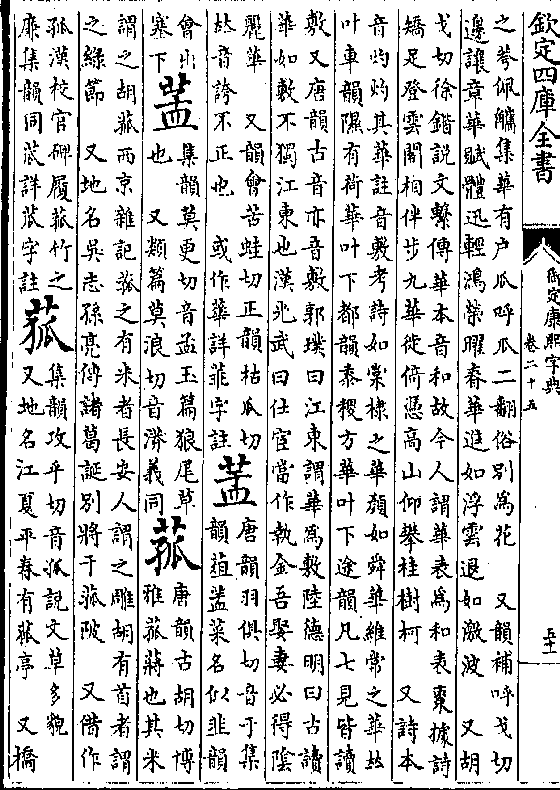 欽定四庫全書
御定康熙字典
卷二十五
之蕚佩觿集華有户瓜呼瓜二翻俗别為花 又韻補呼戈切
邊讓章華賦體迅輕鴻榮曜春華進如浮雲退如激波 又胡
戈切徐鍇説文繫傳華本音和故今人謂華表為和表棗據詩
矯足登雲閣相伴步九華徙倚憑高山仰攀桂樹柯 又詩本
音灼灼其華註音敷考詩如棠棣之華顔如舜華維常之華𠀤
叶車韻隰有荷華叶下都韻黍稷方華叶下途韻凡七見皆讀
敷又唐韻古音亦音敷郭璞曰江東謂華為敷陸德明曰古讀
華如敷不獨江東也漢光武曰仕宦當作執金吾娶妻必得陰
麗華 又韻會苦蛙切正韻枯瓜切
𠀤音誇不正也 或作華詳䔢字註
唐韻羽俱切音于集
韻葅盓菜名似韭韻
會出
塞下
集韻莫更切音孟玉篇狼尾草
也 又類篇莫浪切音漭義同
菰
唐韻古胡切博
雅菰蔣也其米
謂之胡菰西京雜記菰之有米者長安人謂之雕胡有首者謂
之綠節 又地名吳志孫亮傳諸葛誕别將于菰陂 又借作
孤漢校官碑履菰竹之
廉集韻同苽詳苽字註
菰
集韻攻乎切音孤説文草多貌
又地名江夏平春有菰亭 又橋